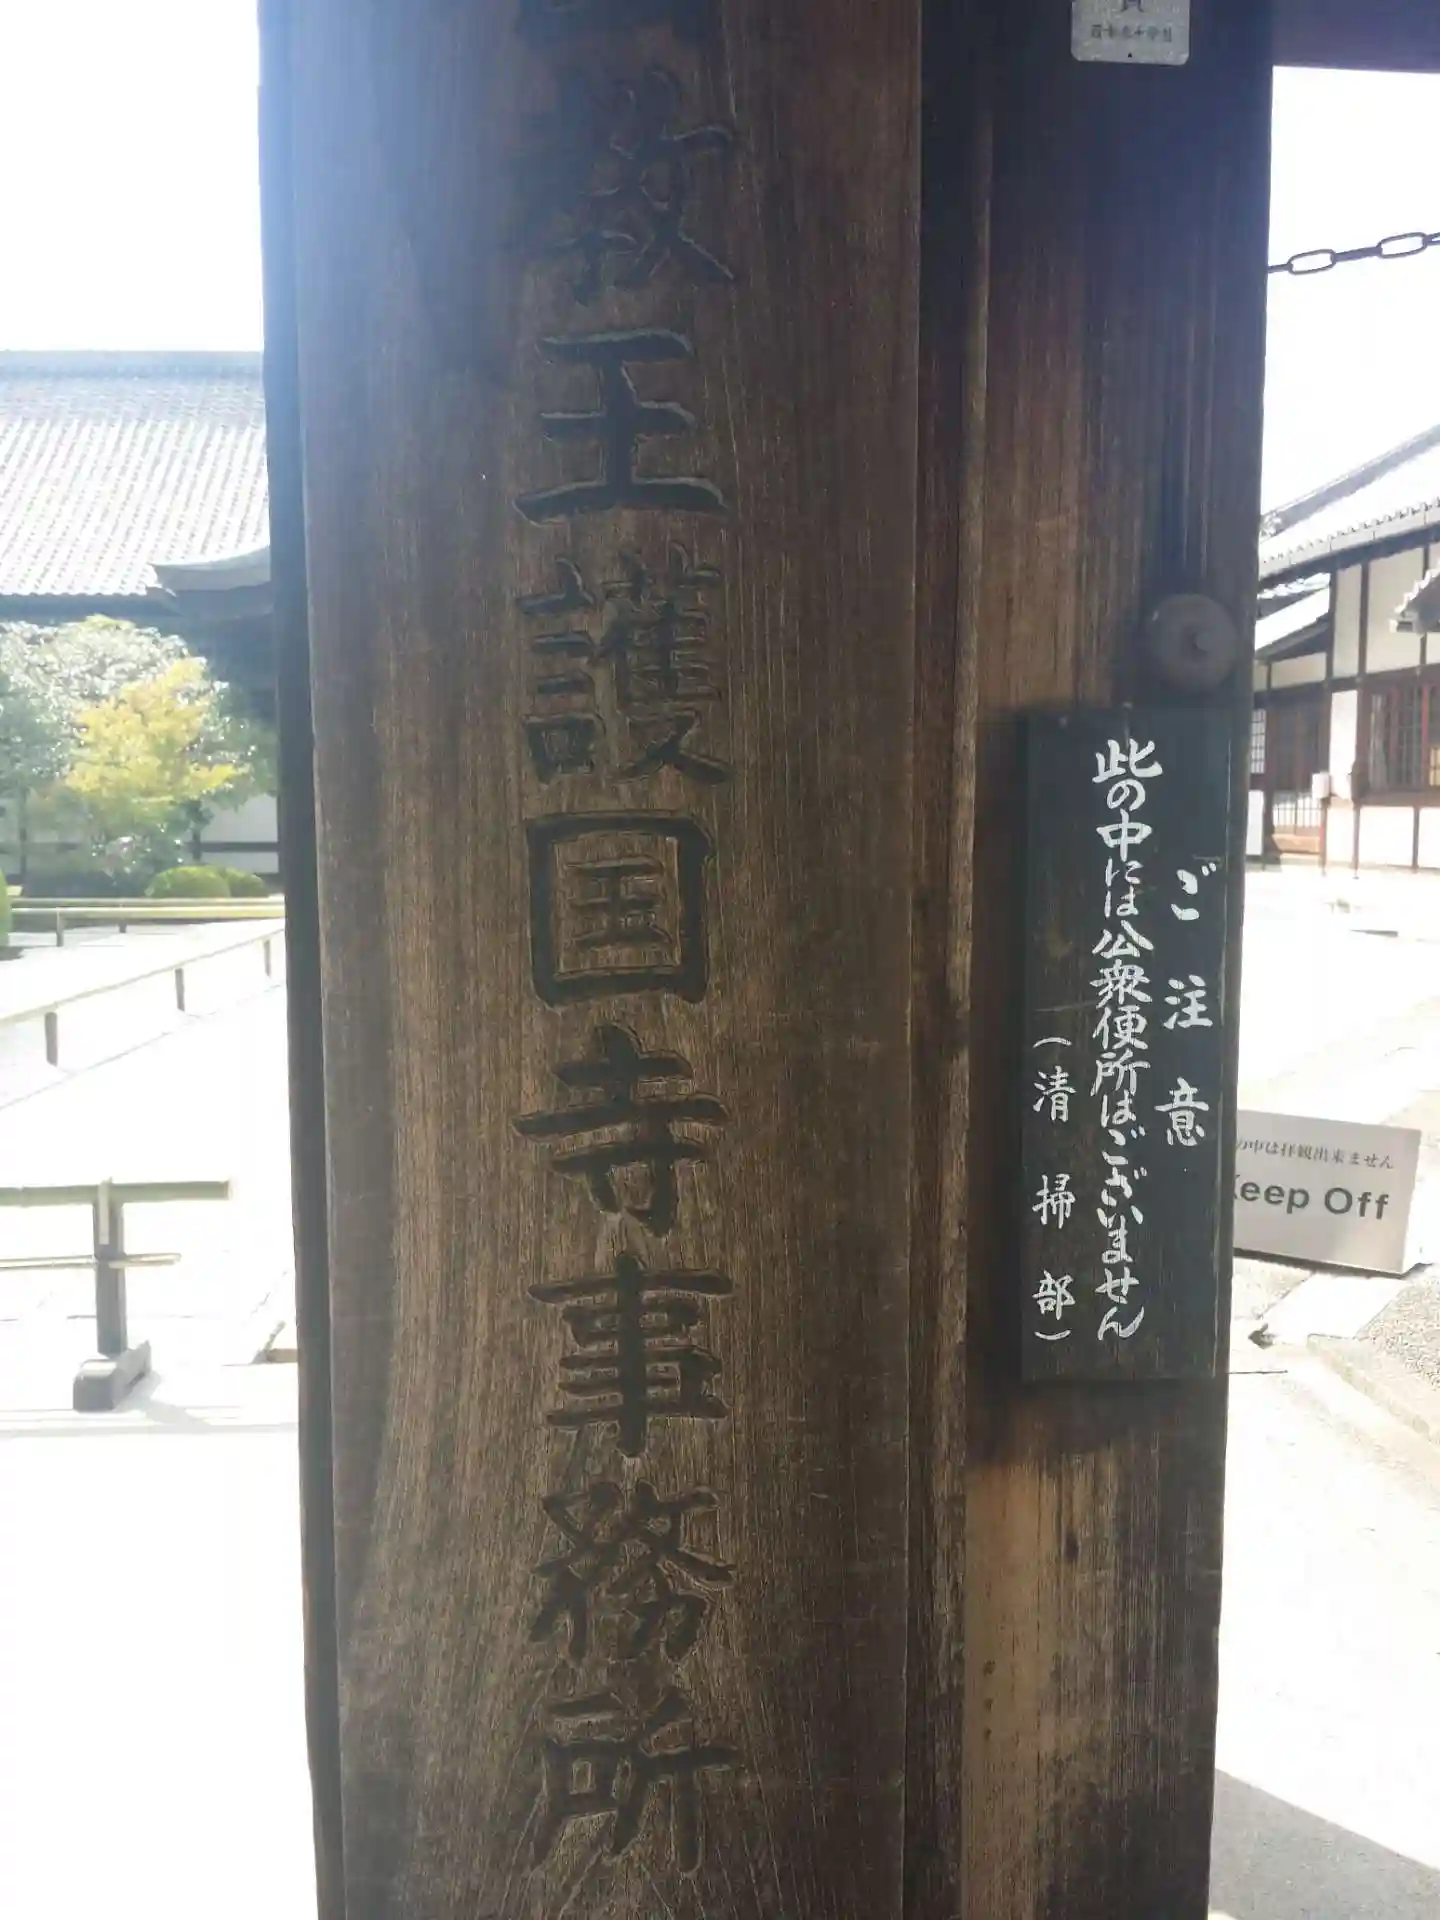 教王護国寺事務所
ご注意
此の中には公衆便所はございません
(清掃部)
の中は拝観出来ません
Keep Off